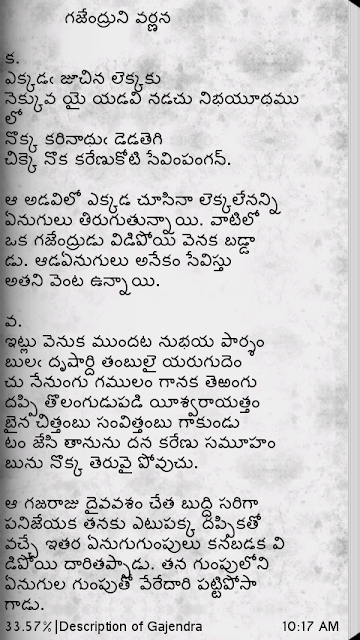 గజేంద్రుని వర్ణన
క.
ఎక్కడఁ జూచిన లెక్కకు
నెక్కువ యై యడవి నడచు నిభయూథము
లో
నొక్క కరినాదుఁ డెడతెగి
చిక్కె నొక కరేణుకోటి సేవింపంగన్.
ఆ అడవిలో ఎక్కడ చూసినా లెక్కలేనన్ని
ఏనుగులు తిరుగుతున్నాయి. వాటిలో
ఒక గజేంద్రుడు విడిపోయి వెనక బడ్డా
డు. ఆడఏనుగులు అనేకం సేవిస్తు
అతని వెంట ఉన్నాయి.
వ.
ఇట్లు వెనుక ముందట నుభయ పార్శ్వం
బులఁ దృషార్ది తంబులై యరుగుదెం
చు నేనుంగు గములం గానక తెఱంగు
దప్పి తొలంగుడుపడి యీశ్వరాయత్తం
బైన చిత్తంబు సంవిత్తంబు గాకుండు
టం జేసి తానును దన కరేణు సమూహం
బును నొక్క తెరువై పోవుచు.
ఆ గజరాజు దైవవశం చేత బుద్ది సరిగా
పనిజేయక తనకు ఎటుపక్క దప్పికతో
వచ్చే ఇతర ఏనుగుగుంపులు కనబడక వి
డిపోయి దారితప్పాడు. తన గుంపులోని
ఏనుగుల గుంపుతో వేరేదారి పట్టిపోసా
గాడు.
33.57%|Description of Gajendra 10:17 AM